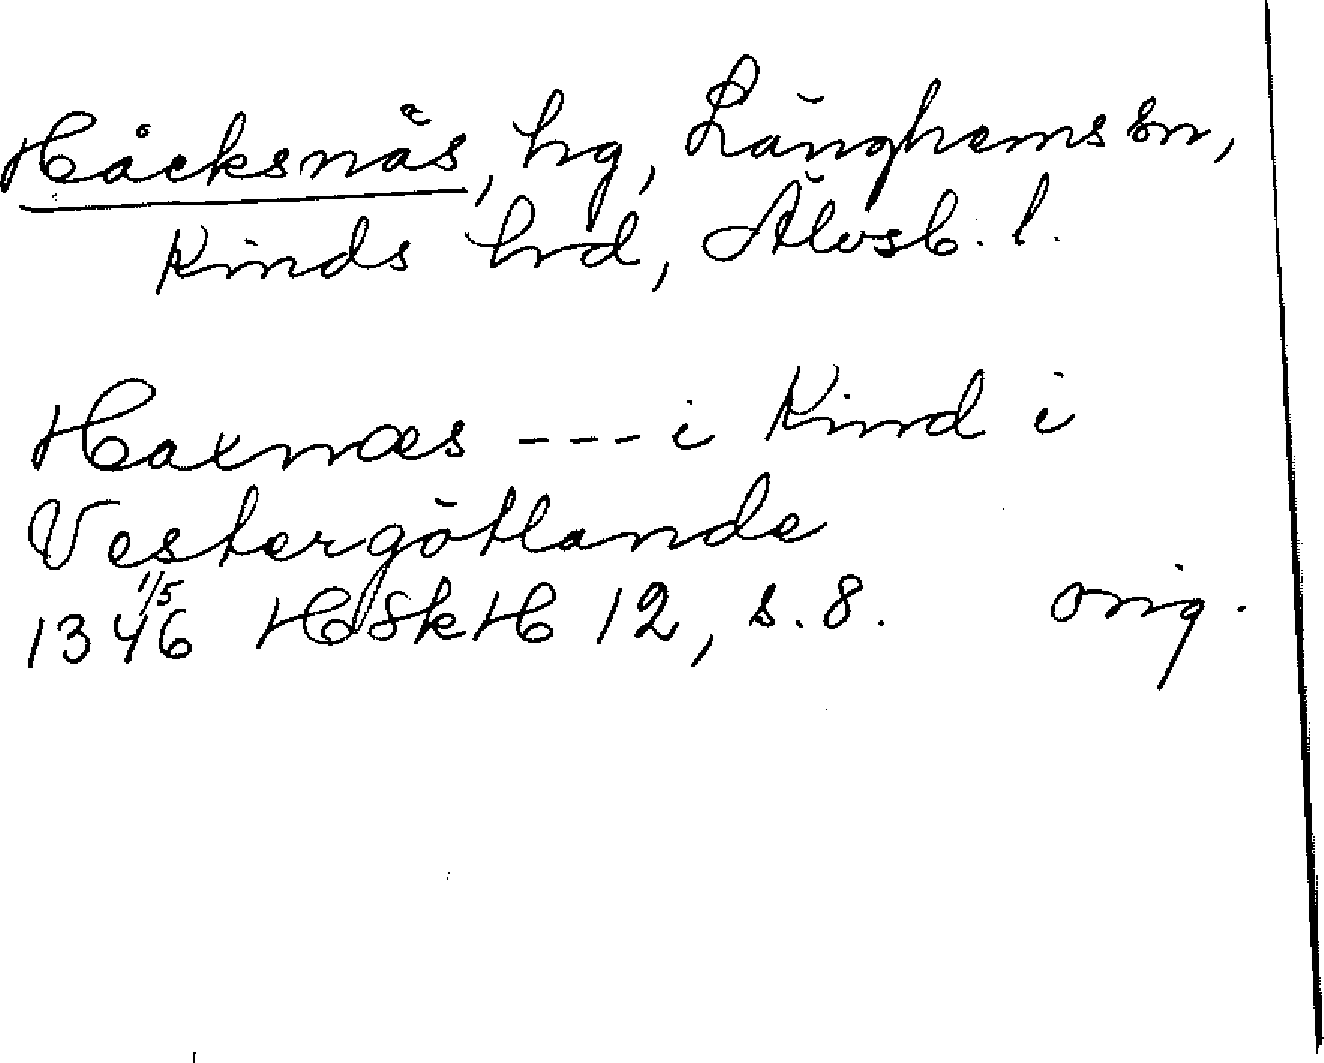 Håcksnäs, hg, Länghems sn,
Kinds hrd, Älvsb. l.
Haxnæs --- i Kind i
Vestergötlande
13 1/5 46 HSkH 12, s. 8. orig.